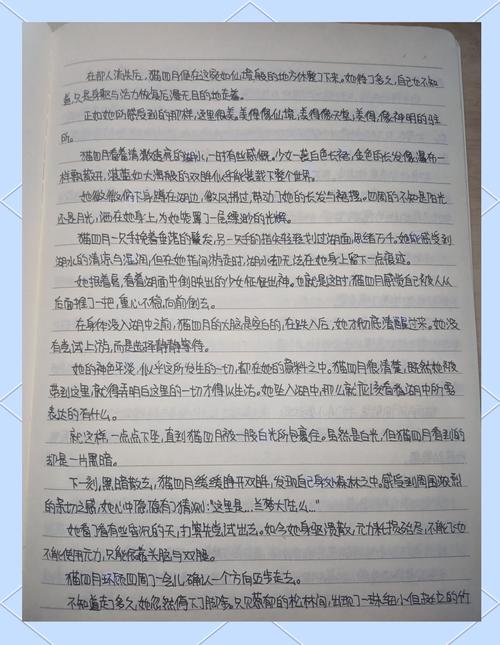 在那人消失后，猫四月便在这宛如仙境般的地方休整了下来。她待了多久，自己也不知
道，只是身躯与活力恢复后漫无目的地走着。
正如她所感受到的那样，这里很美。美得像仙境，美得像天堂，美得，像神明的驻
所。
猫四月看着清澈透底的湖水，一时有些感慨。少女一袭白色长裙，金色的长发像瀑布一
样飘散开，湛蓝如大海般的双眸似乎能装下整个世界。
她微微俯下身蹲在湖边，微风拂过，带动了她的长发与裙摆。四周的不知是阳光
还是月光，洒在她身上，为她笼罩了一层缥缈的光辉。
猫四月一只手挽着垂落的鬓发，另一只手的指尖轻轻划过湖面，思绪万千。她能感受到
湖水的清凉与湿润，但在她指间游走时，湖水却无法在她身上留下一点痕迹。
她抿着唇，看着湖面中倒映出的少女怔怔出神。也就是这时，猫四月感觉自己被人从
后面推了一把，重心不稳，向前倒去。
在身体没入湖中之前，猫四月的大脑是空白的，在跌入后，她才彻底清醒过来。她没
有尝试上游，而是选择静静等待。
她的神色平淡，似乎这所发生的一切，都在她的意料之中。猫四月很清楚，既然她被
带到这里，就得弄明白这里的一切才得以生活。她坠入湖中，那么就应该看看湖中所要
表达的有什么。
就这样，一点点下坠，直到猫四月被一股白光所包裹住。虽然是白光，但猫四月看到的
却是一片黑暗。
下一刻，黑暗散去，猫四月缓缓睁开双眸，发现自己身处森林之中。感受到周围浓烈
的亲切之感，她心中隐隐有了猜测：“这里是…兰梦大陆么…”
她看了看有些昏沉的天，打算先尝试出去。如今她身躯溃散，元力耗损殆尽，不能飞也
不能使用元力，只能依靠头脑与双腿。
猫四月环顾四周了一会儿，确认一个方向迈步走去。
不知道走了多久，她忽然停下了脚步。只见葱郁的松林间，出现了一珠细小但挺立的竹